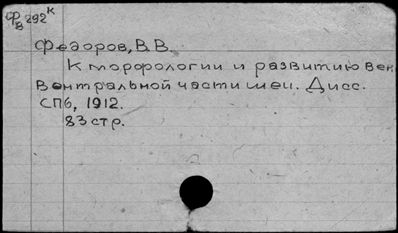 Фв 292к
Федоров, В.В.
К морфологии и развитию вен
вентральной части шеи. Дисс.
СПб, 1912.
83 стр.